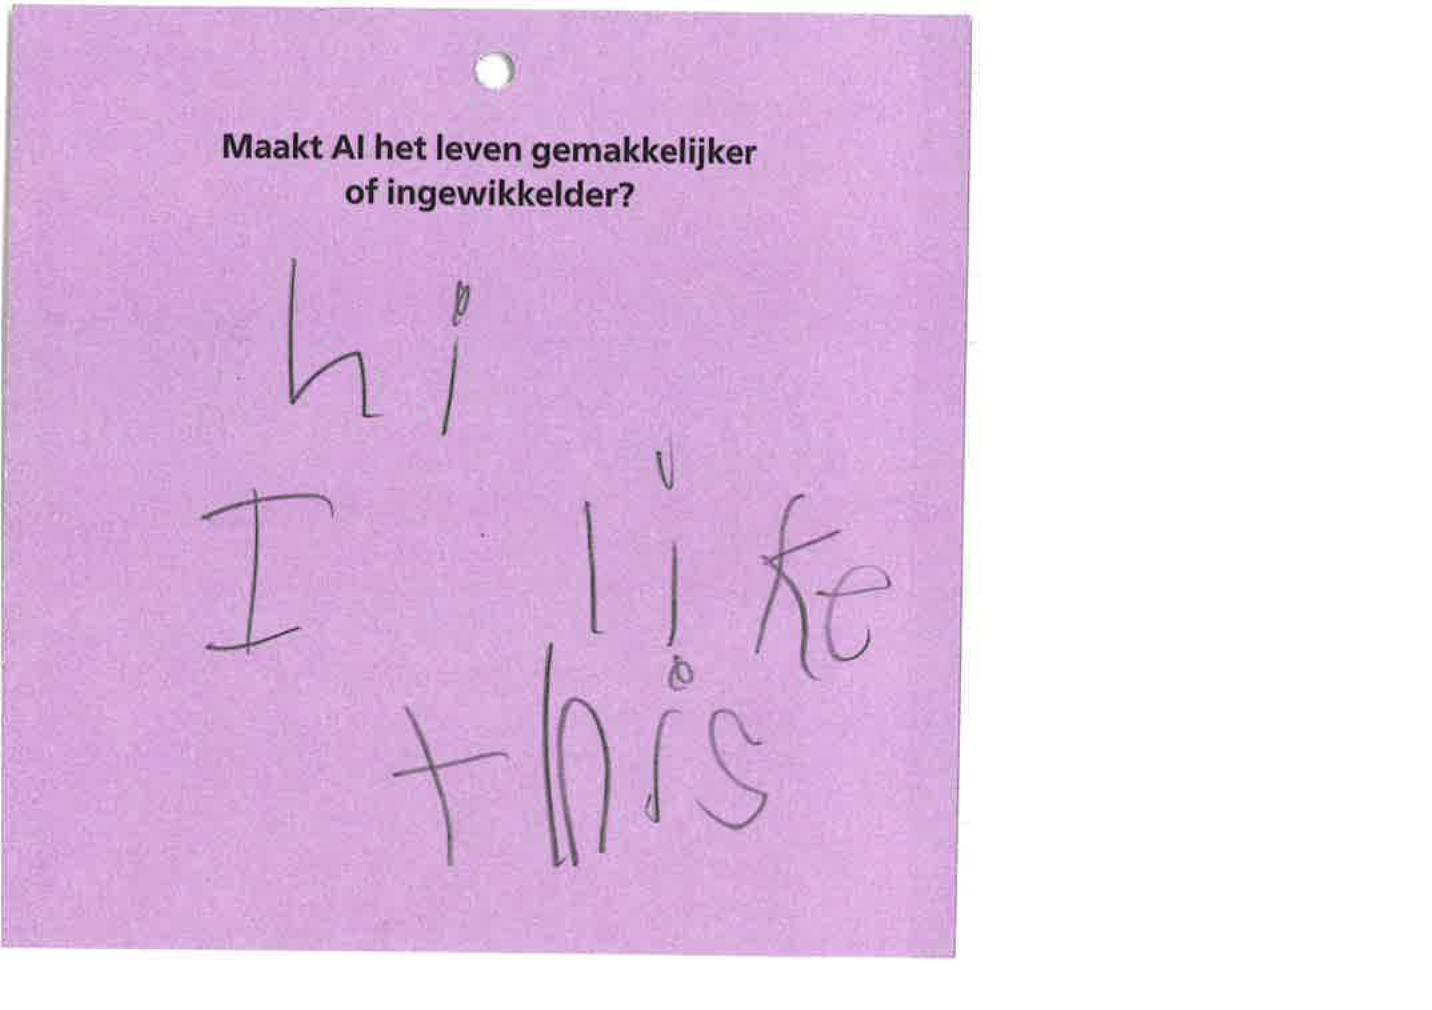 Maakt AI het leven gemakkelijker
of ingewikkelder?
hi
I like
this